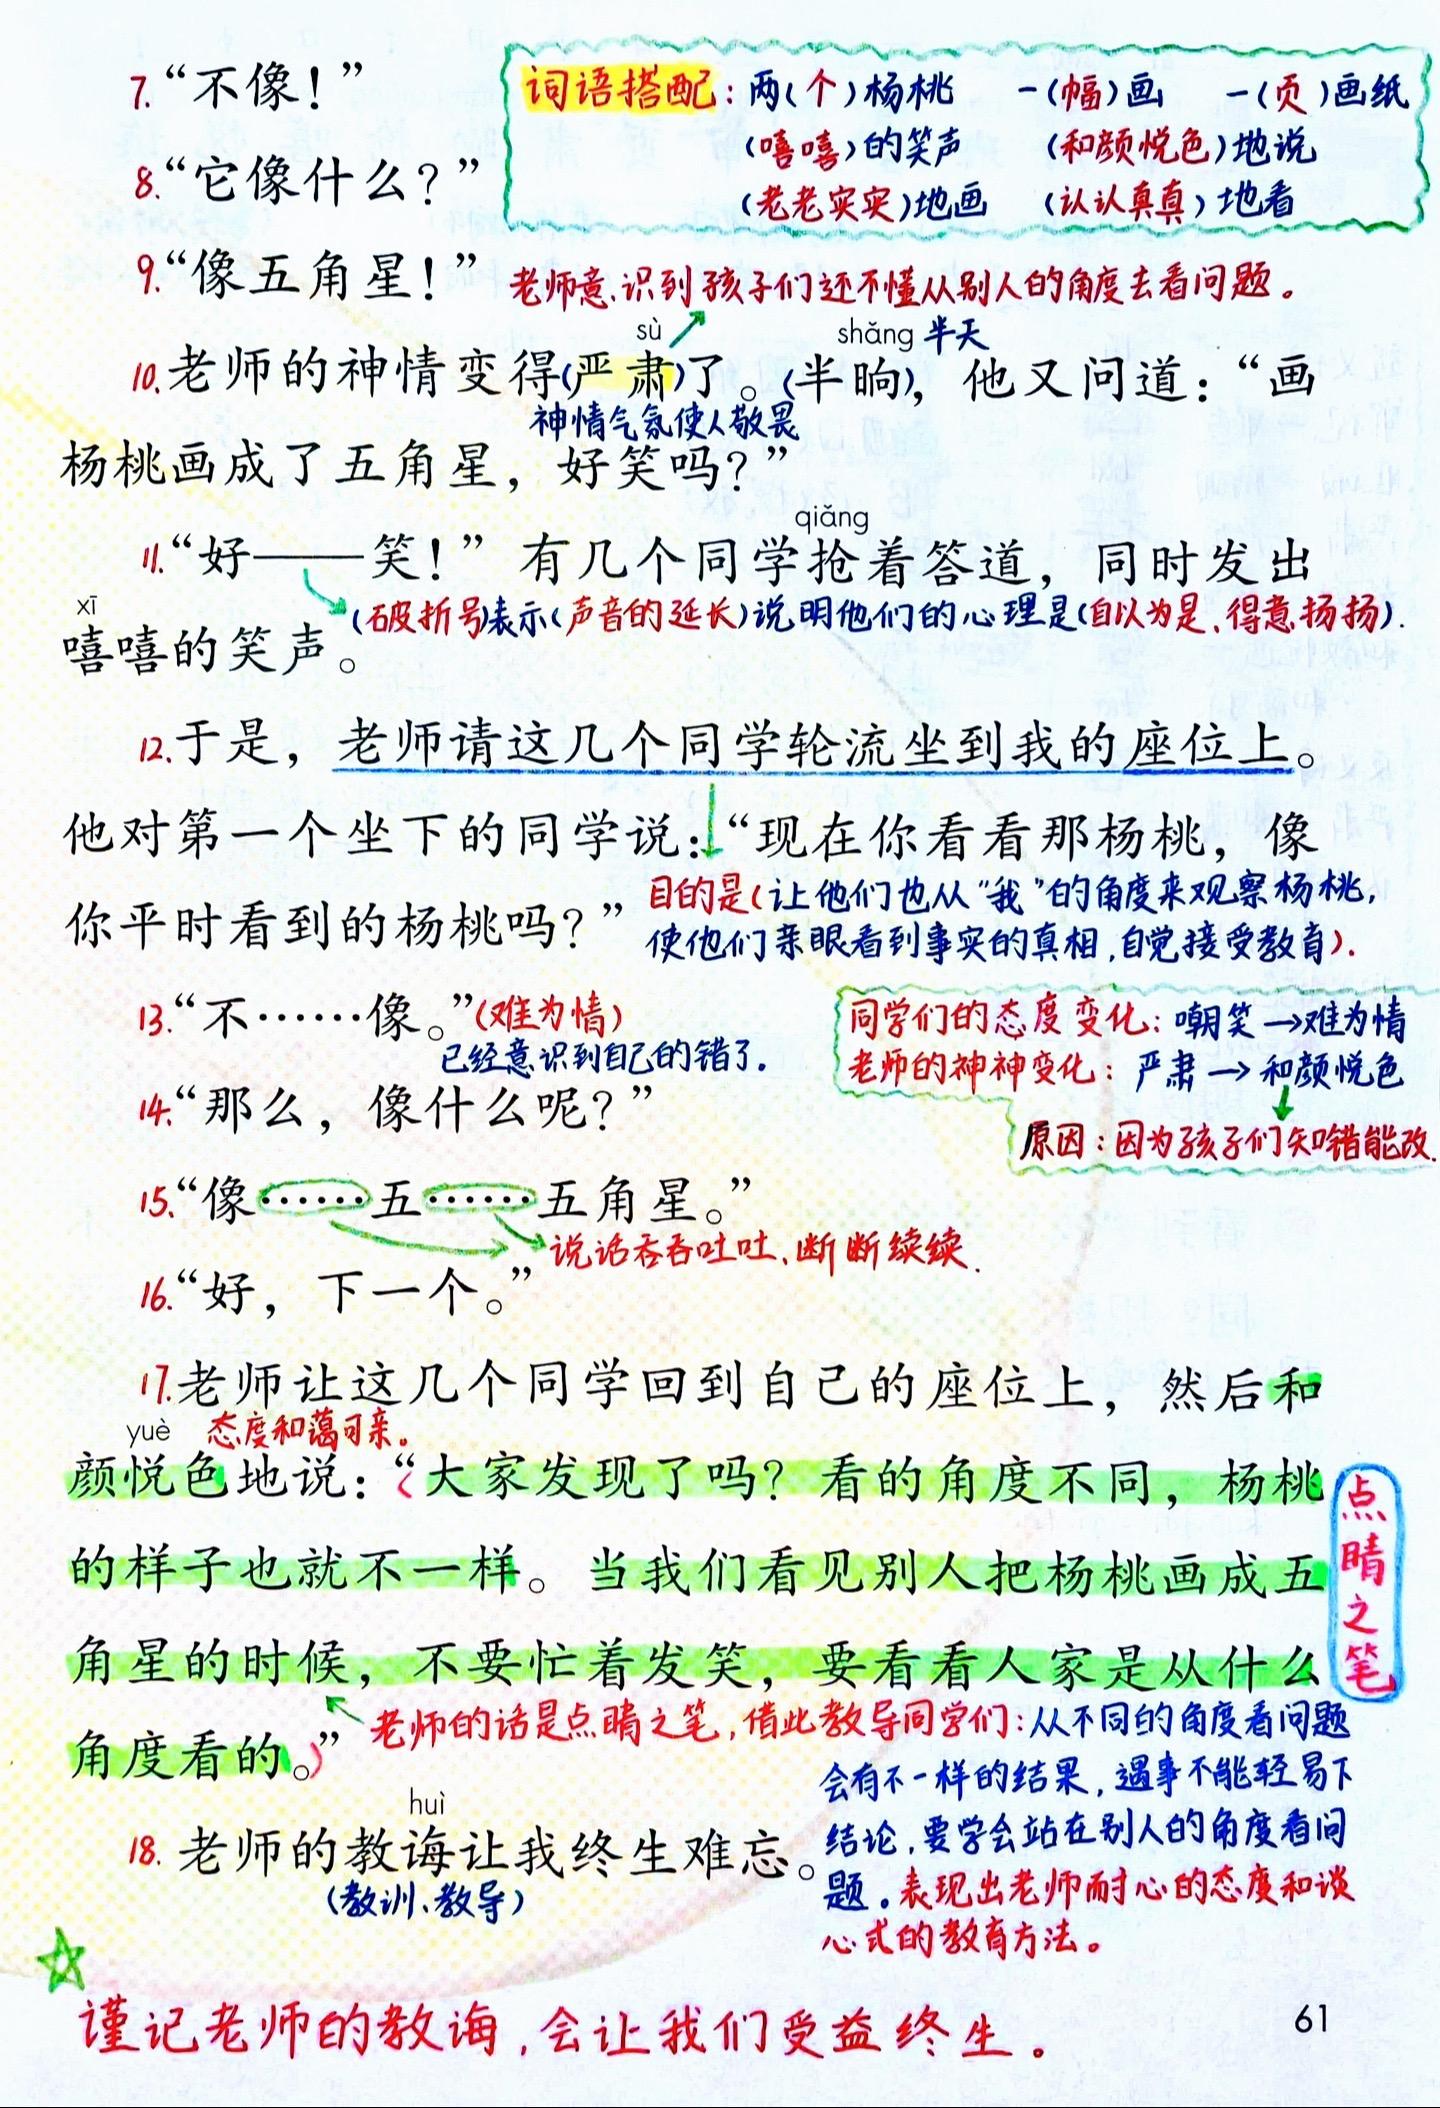 7.“不像！”
词语搭配：两(个)杨桃 一(幅)画 一(页)画纸
(嘻嘻)的笑声 (和颜悦色)地说
(老老实实)地画 (认认真真)地看
8.“它像什么？”
9.“像五角星！”
老师意识到孩子们还不懂从别人的角度去看问题。
sù shǎng 半天
10.老师的神情变得(严肃)了。(半晌)，他又问道：“画
神情气氛使人敬畏
杨桃画成了五角星，好笑吗？”
qiǎng
11.“好——笑！”有几个同学抢着答道，同时发出
xī
(破折号)表示(声音的延长)说明他们的心理是(自以为是、得意扬扬).
嘻嘻的笑声。
12.于是，老师请这几个同学轮流坐到我的座位上。
他对第一个坐下的同学说：“现在你看看那杨桃，像
目的是(让他们也从“我”的角度来观察杨桃,
你平时看到的杨桃吗？”
使他们亲眼看到事实的真相,自觉接受教育).
13.“不……像。”(难为情)
已经意识到自己的错了.
同学们的态度变化：嘲笑→难为情
老师的神神变化：严肃→和颜悦色
原因：因为孩子们知错能改.
14.“那么，像什么呢？”
15.“像……五……五角星。”
说话吞吞吐吐、断断续续.
16.“好，下一个。”
17.老师让这几个同学回到自己的座位上，然后和
yuè 态度和蔼可亲。
颜悦色地说：“(大家发现了吗？看的角度不同，杨桃
的样子也就不一样。当我们看见别人把杨桃画成五
角星的时候，不要忙着发笑，要看看人家是从什么
角度看的。)”
点睛之笔
老师的话是点睛之笔,借此教导同学们：从不同的角度看问题
会有不一样的结果,遇事不能轻易下
结论,要学会站在别人的角度看问
题。表现出老师耐心的态度和谈
心式的教育方法。
huì
18.老师的教诲让我终生难忘。
(教训、教导)
谨记老师的教诲,会让我们受益终生。
61